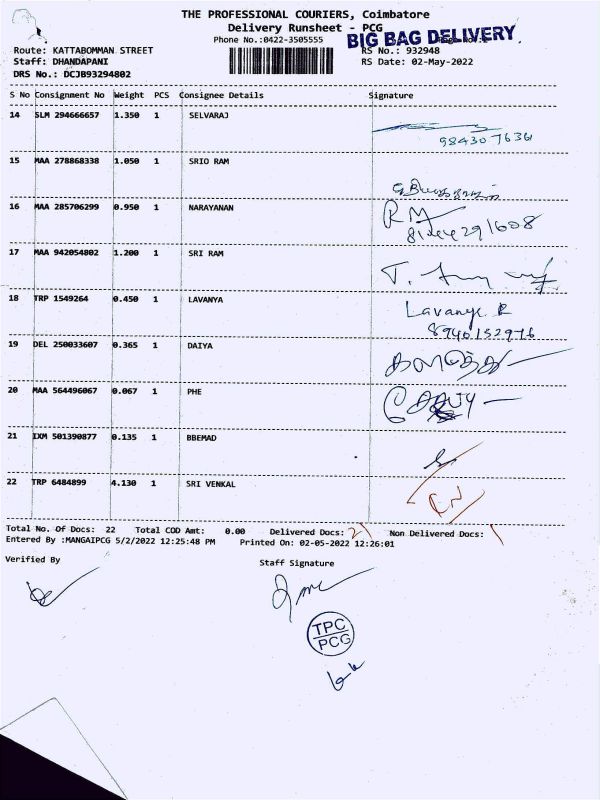 THE PROFESSIONAL COURIERS, Coimbatore
Delivery Runsheet - PCG
Phone No.:0422-3505555
BIG BAG DELIVERY
Route: KATTABOMMAN STREET
RS No.: 932948
Staff: DHANDAPANI
RS Date: 02-May-2022
DRS No.: DCJB93294802
S No Consignment No Weight PCS Consignee Details Signature
14 SLM 294666657 1.350 1 SELVARAJ
984307636
15 MAA 278868338 1.050 1 SRIO RAM
16 MAA 285706299 0.950 1 NARAYANAN
17 MAA 942054802 1.200 1 SRI RAM
18 TRP 1549264 0.450 1 LAVANYA Lavanya R
8940152976
19 DEL 250033607 0.365 1 DAIYA
20 MAA 564496067 0.067 1 PHE
21 IXM 501390877 0.135 1 BBEMAD
22 TRP 6484899 4.130 1 SRI VENKAL
Total No. Of Docs: 22 Total COD Amt: 0.00 Delivered Docs: 21 Non Delivered Docs: 1
Entered By :MANGAIPCG 5/2/2022 12:25:48 PM Printed On: 02-05-2022 12:26:01
Verified By
Staff Signature
TPC
PCG